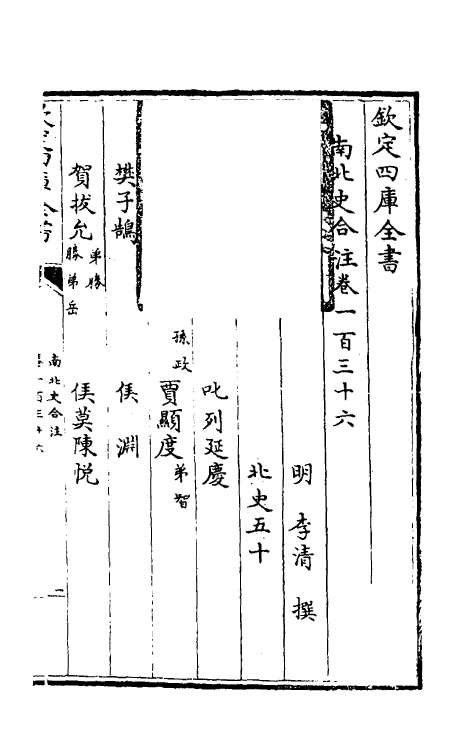 欽定四庫全書
南北史合注卷一百三十六
明 李清 撰
北史五十
叱列延慶
孫政
賈顯度弟智
樊子鵠
侯淵
賀拔允弟勝 勝弟岳
侯莫陳悅
南北史合注
一